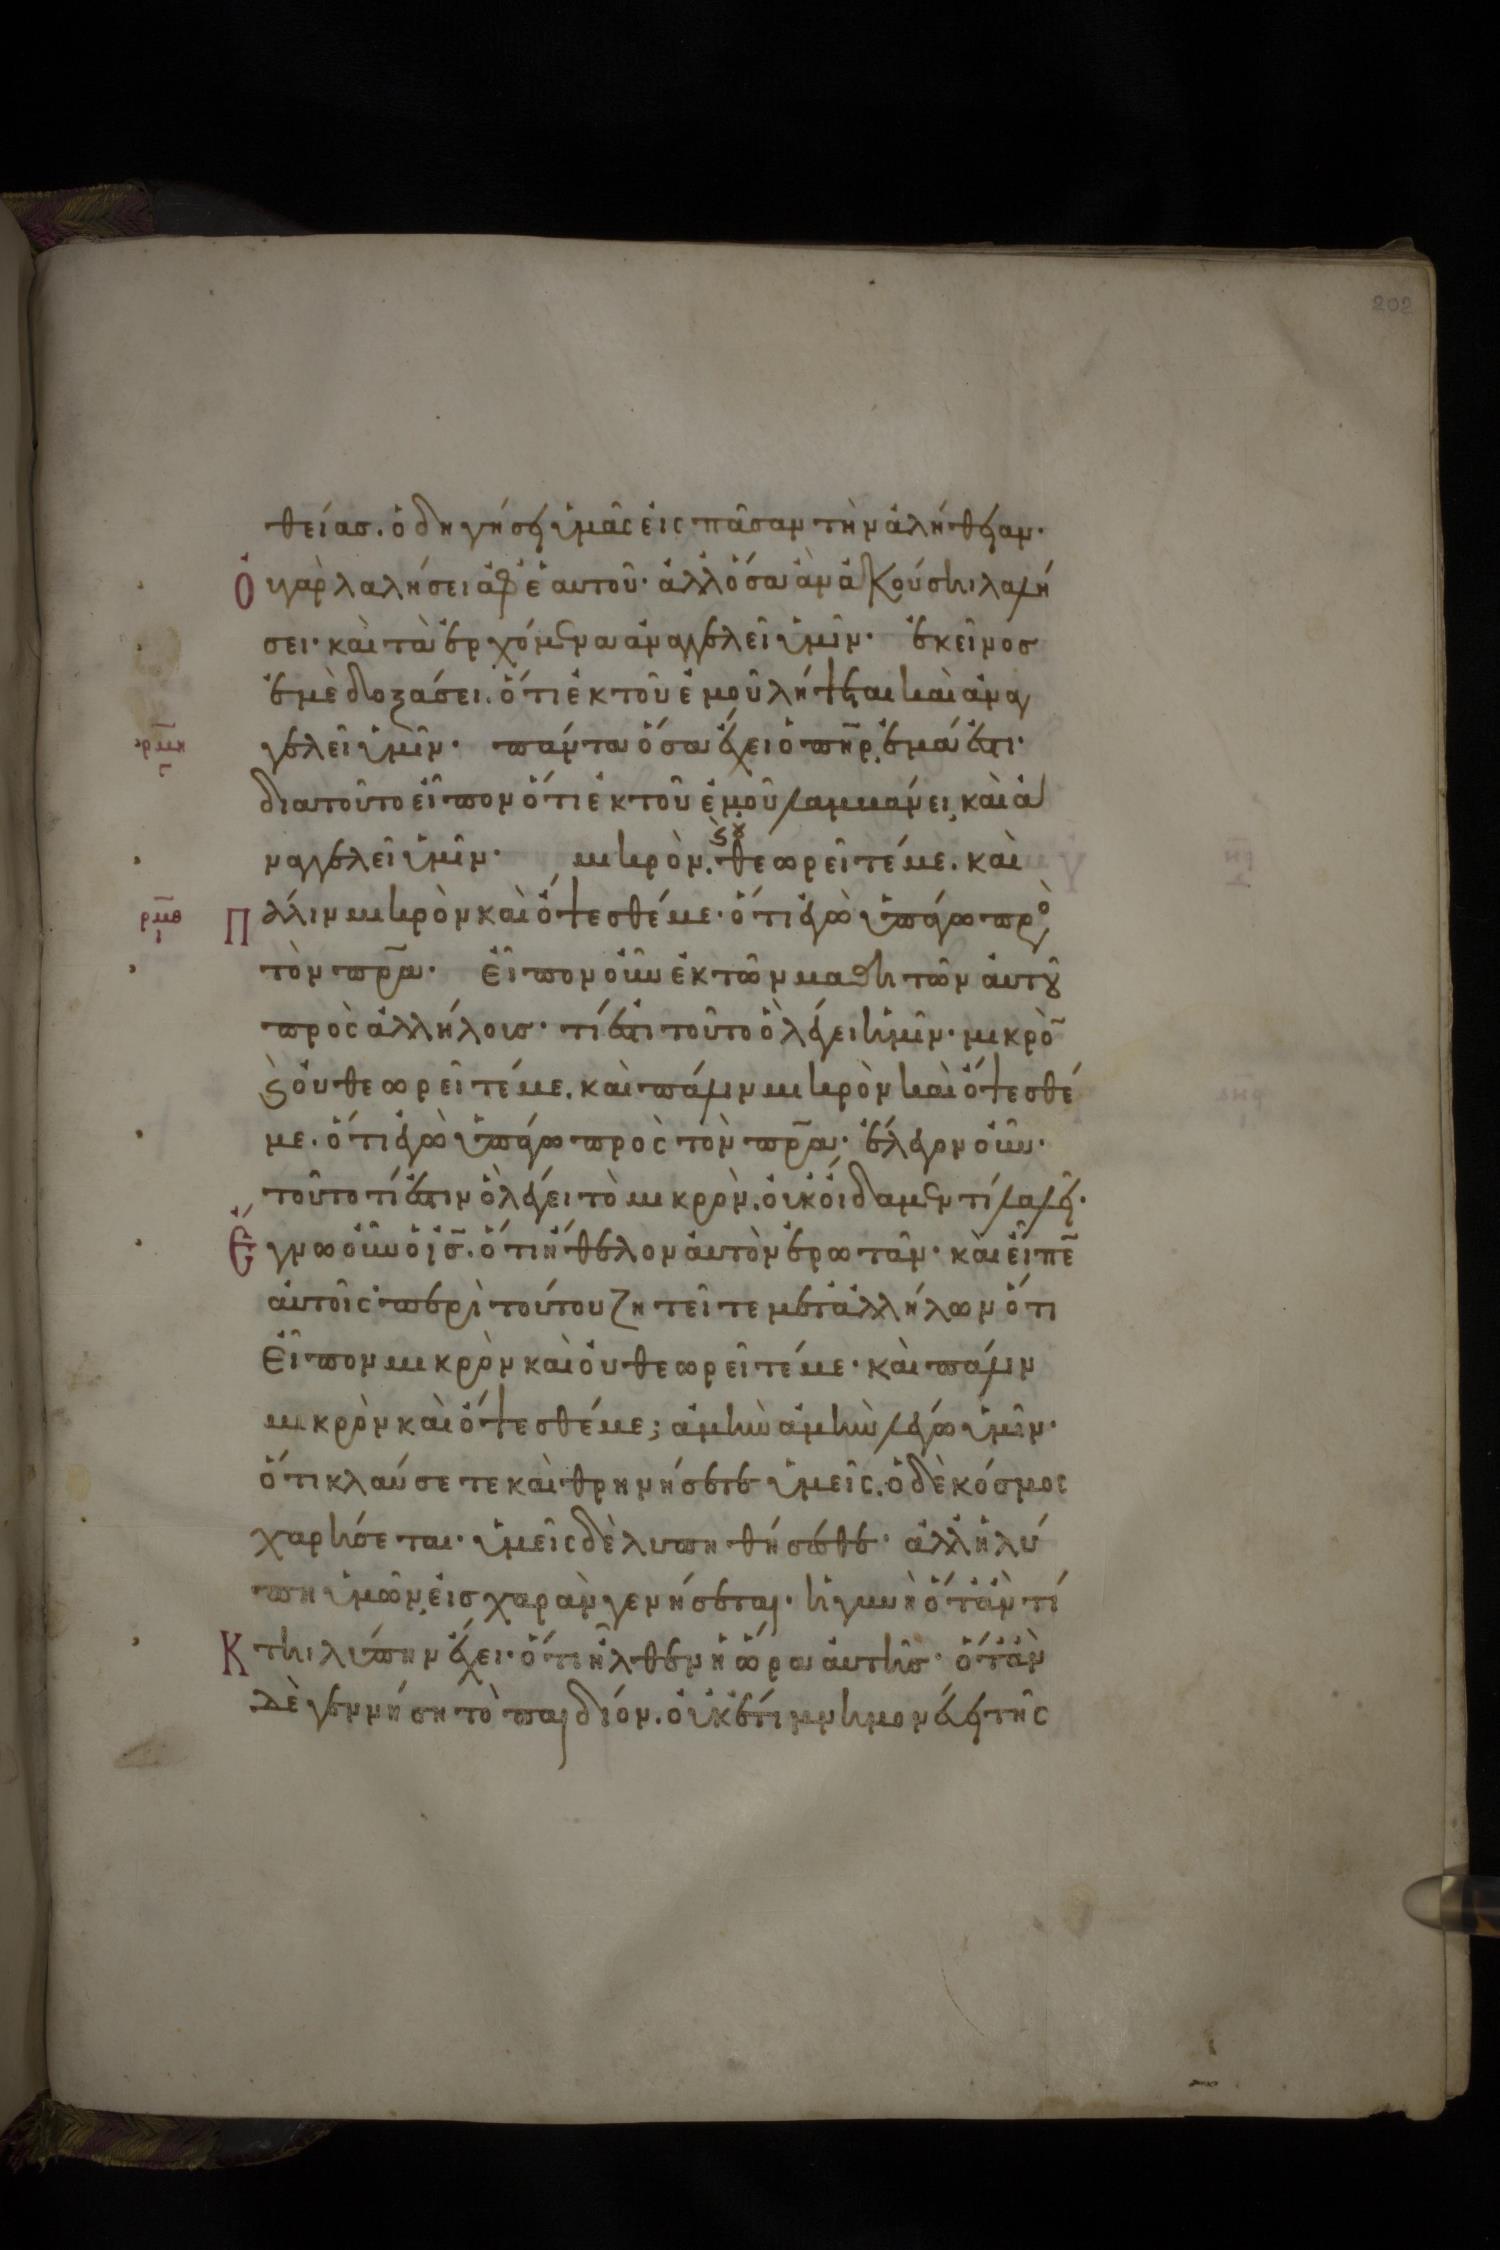 202
θείασ. ὁδηγήσει ὑμᾶς εἰς πᾶσαν τὴν ἀλήθειαν·
Ὀ υγαρ λαλήσει ἀφ' ἑαυτοῦ· ἀλλ' ὅσα ἂν ἀκούσηι λαλή
σει· καὶ τὰ ἐρχόμενα ἀναγγελεῖ ὑμῖν· ἐκεῖνοσ
ἐμὲ δοξάσει. ὅτι ἐκ τοῦ ἐμοῦ λήψεται καὶ ἀναγ
γελεῖ ὑμῖν· πάντα ὅσα ἔχει ὁ πη̅ρ, ἐμά ἐστι·
ρμη
διατοῦτο εἶπον ὅτι ἐκ τοῦ ἐμοῦ λαμβάνει, καὶ ἀ
ναγγελεῖ ὑμῖν· μικρὸν. ϗ ου θεωρεῖτέ με. καὶ
ρμθ
Π άλιν μικρὸν καὶ ὄψεσθέ με· ὅτι ἐγὼ ὑπάγω προ
τὸν πρ̅α· Εἶπον οὖν ἐκ τῶν μαθητῶν αὐτοῦ
πρὸς ἀλλήλουσ· τί ἐστι τοῦτο ὃ λέγει ἡμῖν· μικρὸ̅
ϗ οὐ θεωρεῖτέ με. καὶ πάλιν μικρὸν καὶ ὄψεσθέ
με· ὅτι ἐγὼ ὑπάγω πρὸς τὸν πρ̅α· ἔλεγον οὖν·
τοῦτο τί ἐστιν ὃ λέγει τὸ μικρὸν. οὐκ οἴδαμεν τί λαλεῖ·
Ἔ γνω οὖν ὁ ι̅σ̅. ὅτι ἤθελον αὐτὸν ἐρωτᾶν· καὶ εἶπε̅
αὐτοῖς· περὶ τούτου ζητεῖτε μετ' ἀλλήλων ὅτι
Εἶπον μικρὸν καὶ οὐ θεωρεῖτέ με· καὶ πάλιν
μικρὸν καὶ ὄψεσθέ με; ἀμὴν ἀμὴν λέγω ὑμῖν·
ὅτι κλαύσετε καὶ θρηνήσετε ὑμεῖς. ὁ δὲ κόσμος
χαρήσεται· ὑμεῖς δὲ λυπηθήσεσθε· ἀλλ' ἡ λύ
πη ὑμῶν, εἰσ χαρὰν γενήσεται· ἡ γυνὴ ὅταν τί
Κ τηι λύπην ἔχει· ὅτι ἦλθεν ἡ ὥρα αὐτῆσ· ὅταν
δὲ γεννήση τὸ παιδίον. οὐκέτι μνημονεύει τῆς